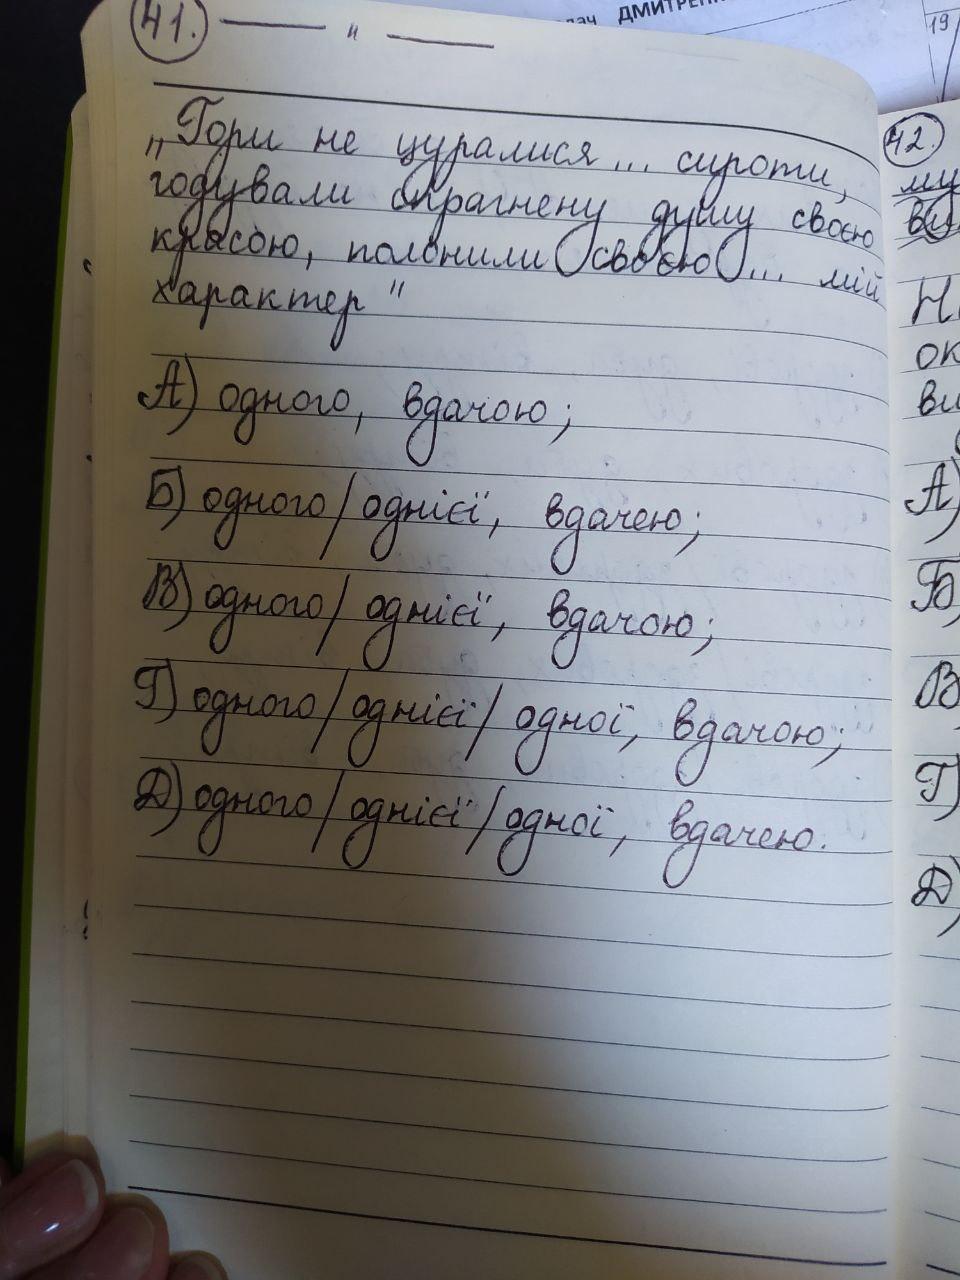 ДМИТРЕН
19
41. ——— " ———
„Гори не цуралися ... сироти,
годували спрагнену душу своєю
красою, полонили своєю ... мій
характер"
А) одного, вдачою;
Б) одного/однієї, вдачею;
В) одного/однієї, вдачою;
Г) одного/однієї/одної, вдачою;
Д) одного/однієї/одної, вдачею.
42.
А)
Б)
В)
Г)
Д)